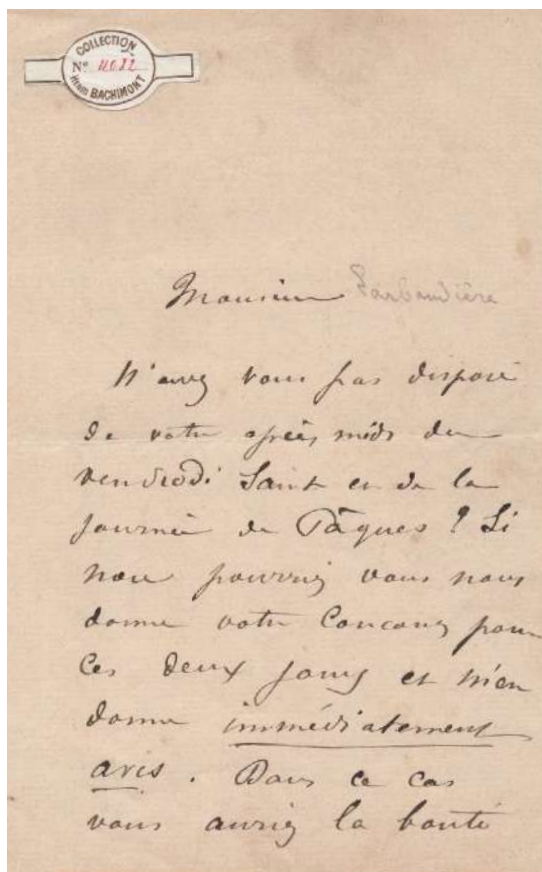 COLLECTION
Nº 4022
HENRI BACHIMONT
Monsieur
N'avez vous pas disposé
de votre après midi du
vendredi Saint et de la
journée de Pâques ? Si
non pourriez vous nous
donner votre concours pour
ces deux jours et m'en
donner immédiatement
avis. Dans ce cas
vous auriez la bonté